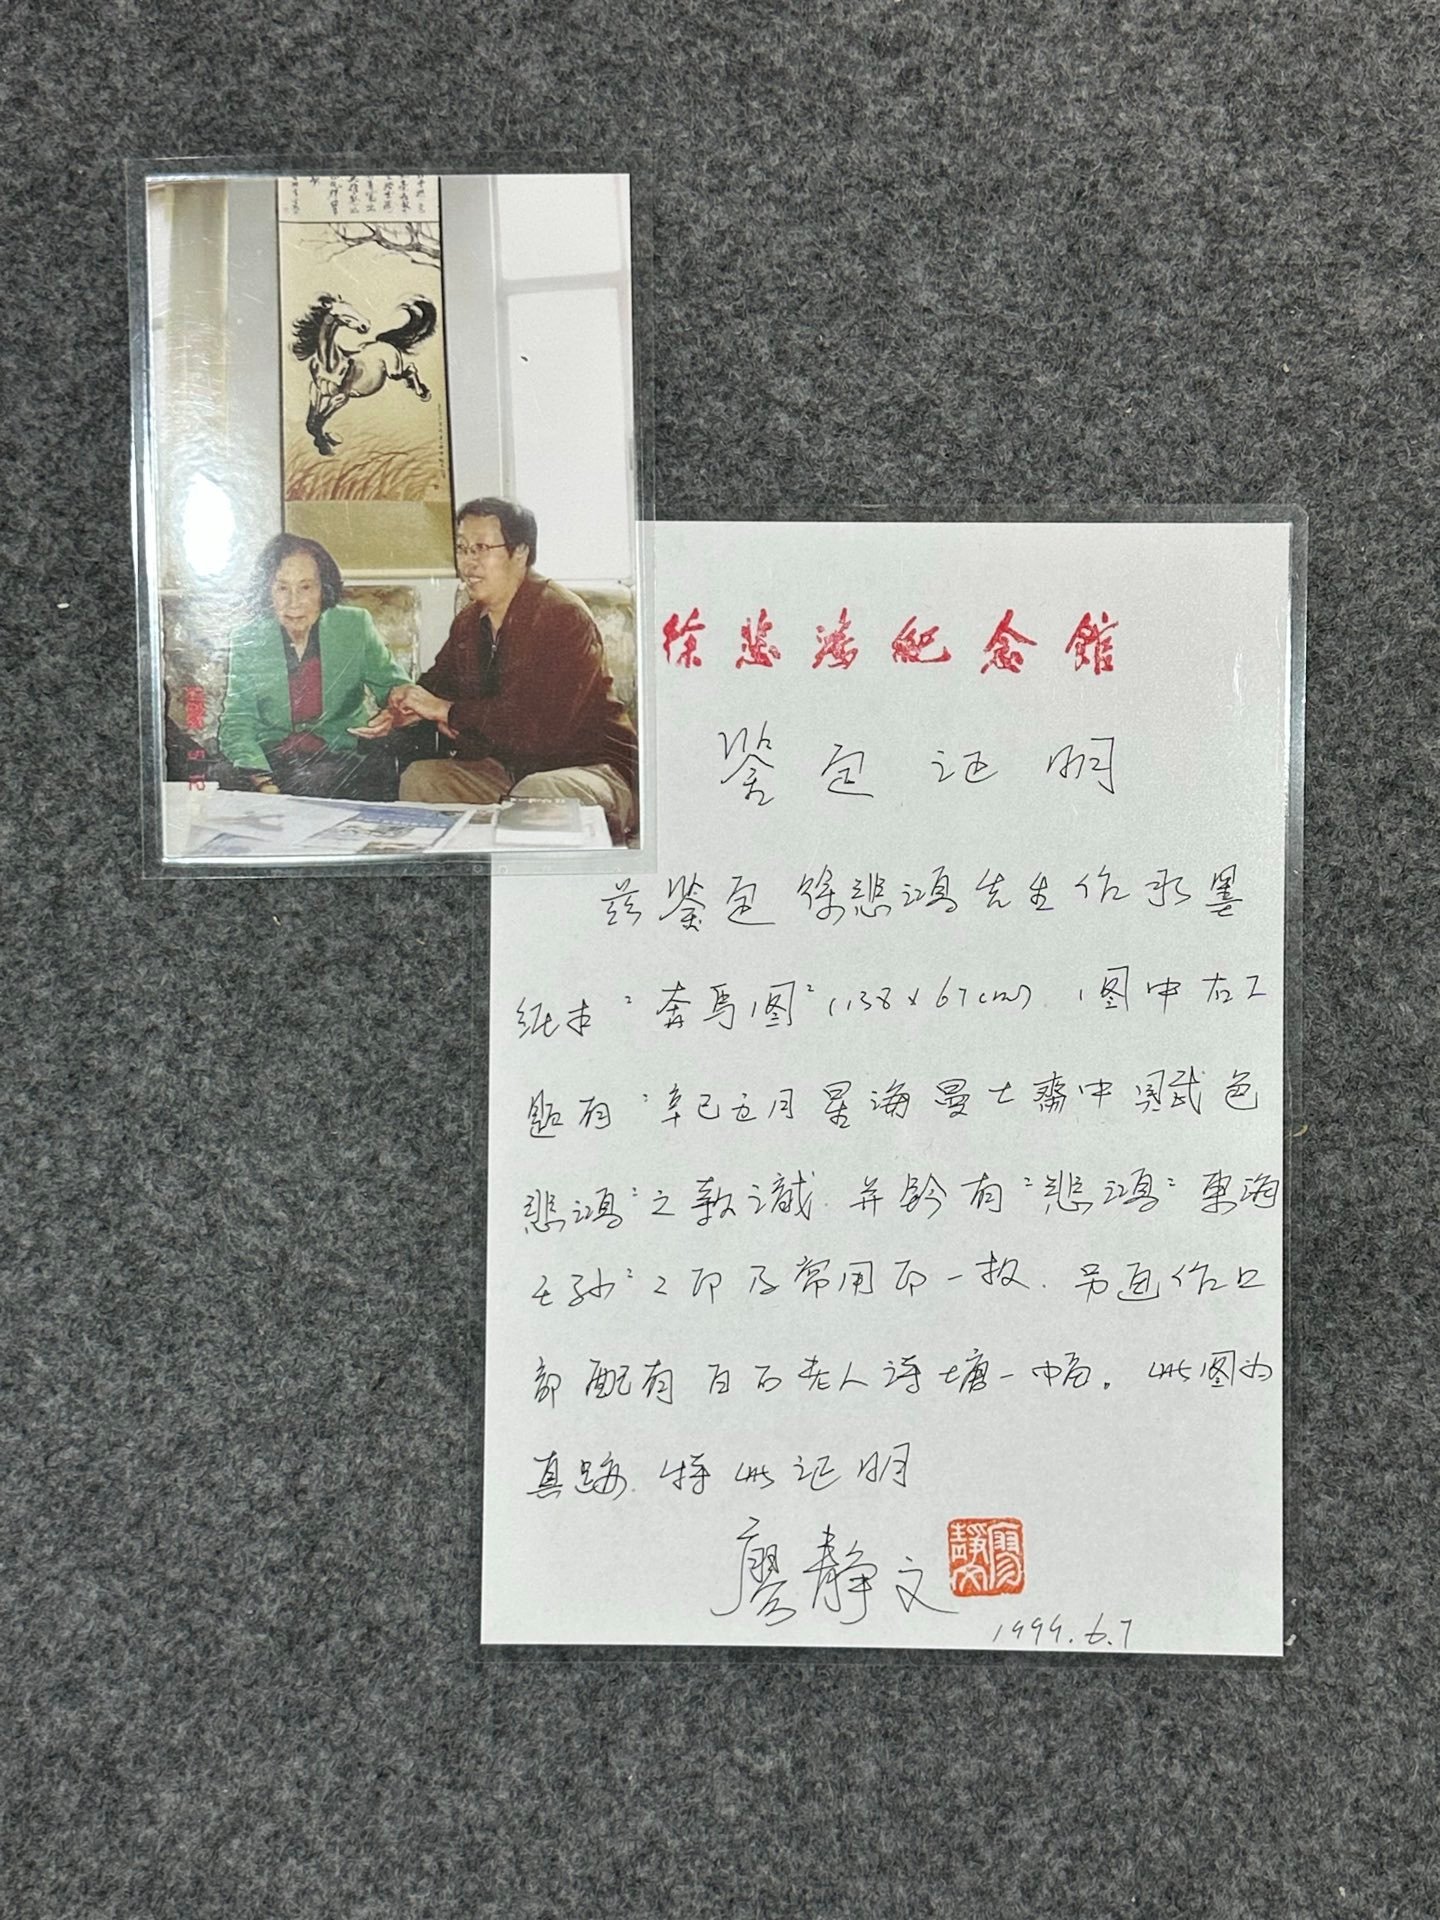 徐悲鸿纪念馆
鉴定证明
兹鉴定徐悲鸿先生作水墨
纸本"奔马图"(138×67cm).图中右下
题有"辛巳五月星海曼士斋中写武邑
悲鸿"之款识.并钤有"悲鸿"东海
王孙"之印及常用印一枚.另画作上
部配有白石老人诗塘一幅。此图为
真迹.特此证明
廖静文
廖靜文
1999.6.7
5 12